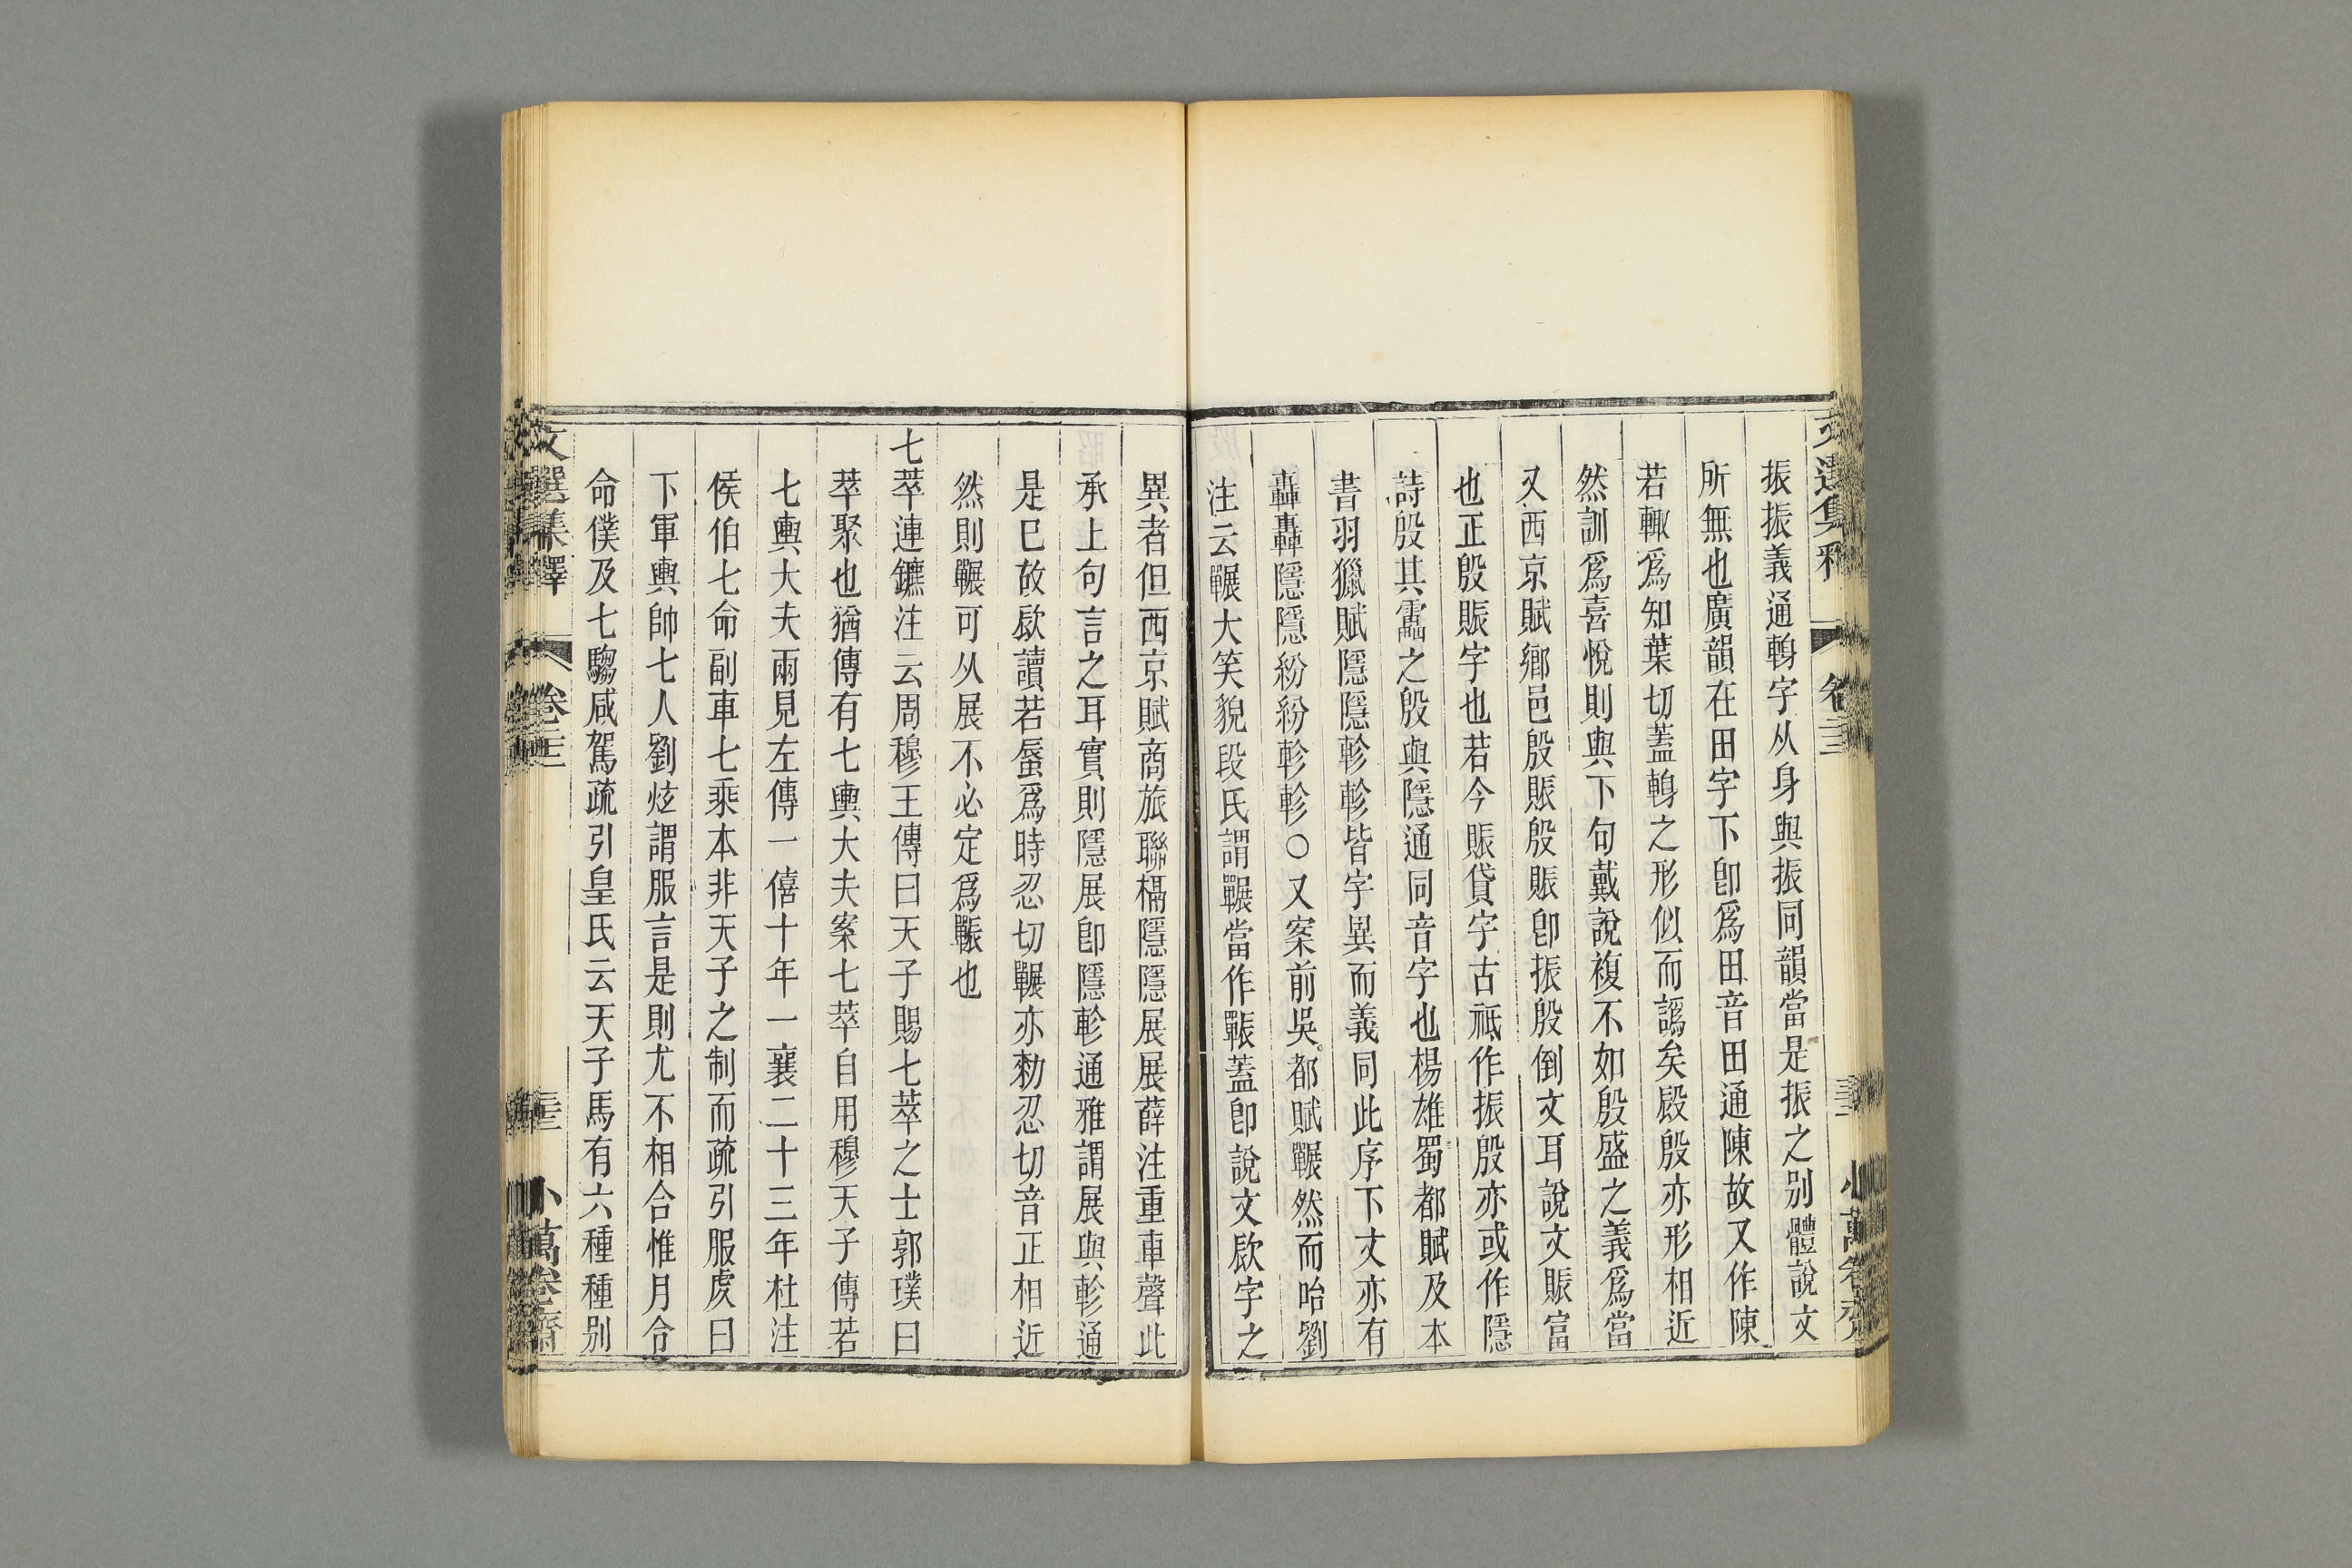 振振義通䡅字从身與振同韻當是振之别體說文
所無也廣韻在田字下卽爲田音田通陳故又作陳
若輙爲知葉切蓋䡅之形似而譌矣殷殷亦形相近
然訓爲喜悅則與下句戴說複不如殷盛之義爲當
又西京賦鄉邑殷賑殷賑卽振殷倒文耳說文賑富
也正殷賑字也若今賑貸字古祗作振殷亦或作隱
詩殷其靁之殷與隱通同音字也楊雄蜀都賦及本
書羽獵賦隱隱軫軫皆字異而義同此序下文亦有
轟轟隱隱紛紛軫軫○又案前吳都賦囅然而咍劉
注云囅大笑貌段氏謂囅當作辴蓋卽說文欪字之
異者但西京賦商旅聯槅隱隱展展薛注重車聲此
承上句言之耳實則隱展卽隱軫通雅謂展與軫通
是巳故欪讀若蜃爲時忍切囅亦勑忍切音正相近
然則囅可从展不必定爲辴也
七萃連鑣注云周穆王傳曰天子賜七萃之士郭璞曰
萃聚也猶傳有七輿大夫案七萃自用穆天子傳若
七輿大夫兩見左傳一僖十年一襄二十三年杜注
侯伯七命副車七乘本非天子之制而疏引服虔曰
下軍輿帥七人劉炫謂服言是則尤不相合惟月令
命僕及七騶咸駕疏引皇氏云天子馬有六種種别
文選集釋 卷二十三 小萬卷齋